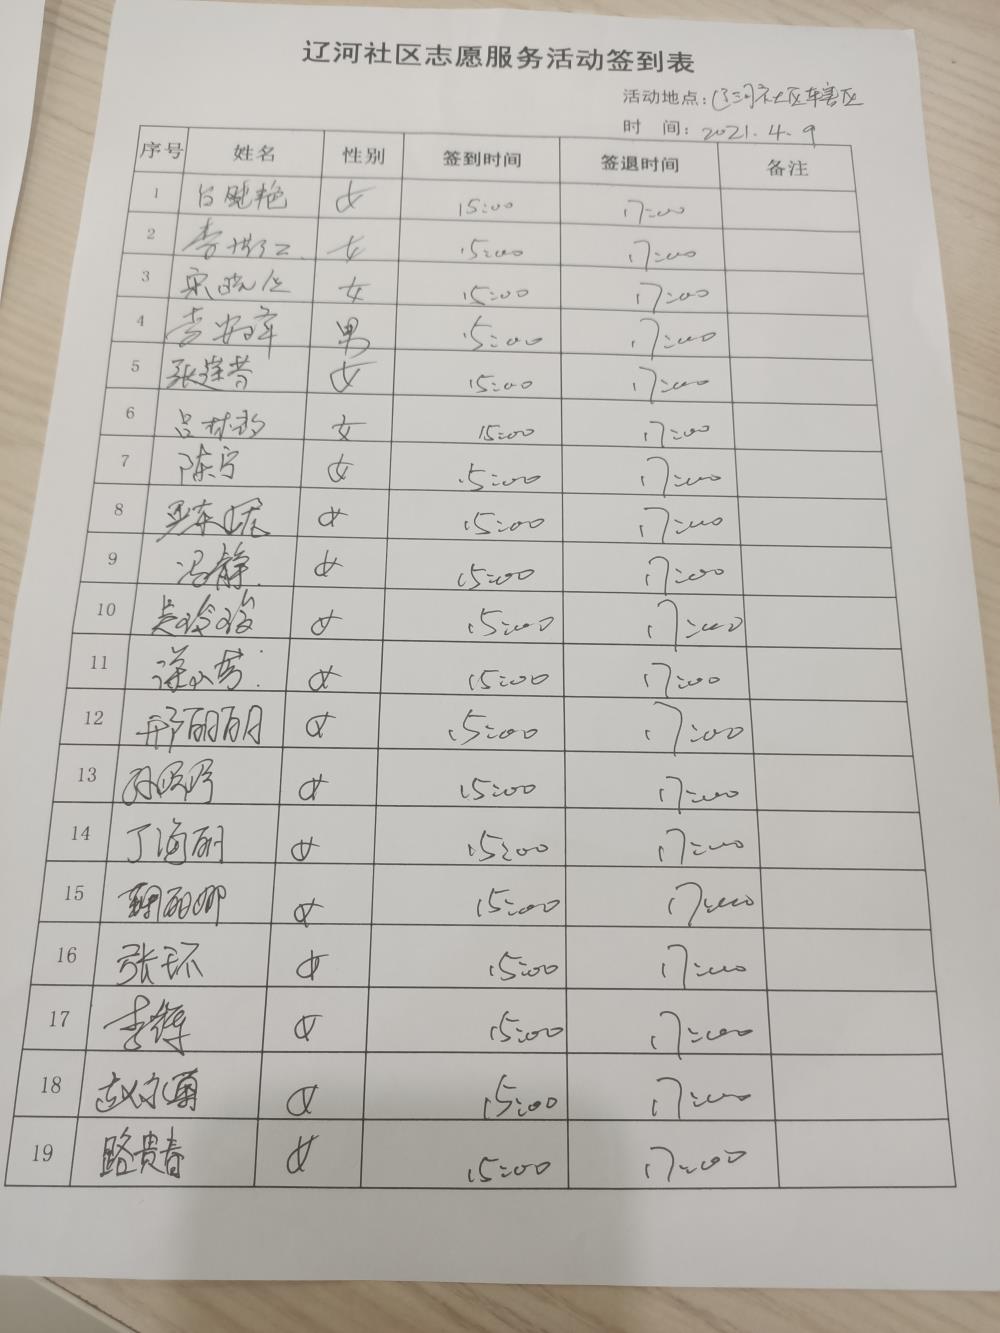 辽河社区志愿服务活动签到表
活动地点:辽河社区辖区
时 间:2021.4.9
序号 姓名 性别 签到时间 签退时间 备注
1 吕晓艳 女 15:00 17:00
2 李洪江 女 15:00 17:00
3 宋晓 女 15:00 17:00
4 李 男 15:00 17:00
5 张 女 15:00 17:00
6 吕 女 15:00 17:00
7 陈宁 女 15:00 17:00
8 女 15:00 17:00
9 冯静 女 15:00 17:00
10 吴玲玲 女 15:00 17:00
11 女 15:00 17:00
12 丽丽 女 15:00 17:00
13 孙 女 15:00 17:00
14 丁海丽 女 15:00 17:00
15 丽娜 女 15:00 17:00
16 张环 女 15:00 17:00
17 李 女 15:00 17:00
18 赵 女 15:00 17:00
19 路贵春 女 15:00 17:00